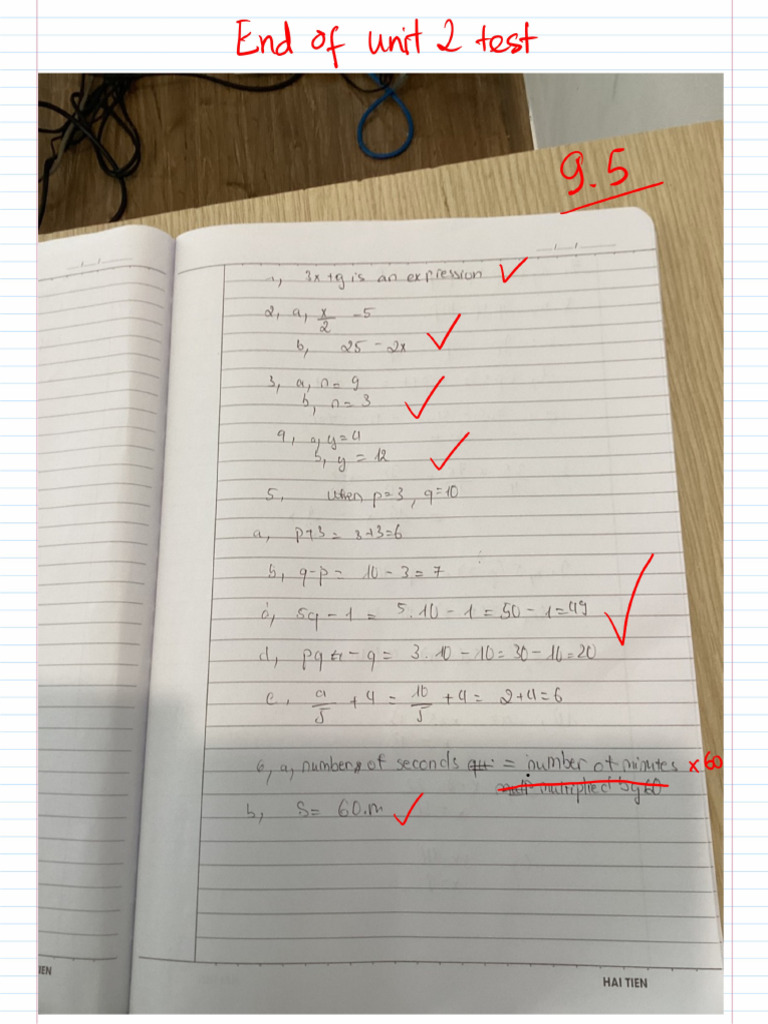 End of unit 2 test
9.5
1, 3x+9 is an expression
2, a, x/2 -5
b, 25 - 2x
3, a, n= 9
b, n= 3
4, a, y=4
b, y = 12
5, when p=3, q=10
a, p+3= 3+3=6
b, q-p= 10-3=7
c, 5q-1 = 5.10-1=50-1=49
d, pq - q= 3.10-10=30-10=20
e, q/5 +4= 10/5 +4= 2+4=6
6, a, numbers of seconds = number of minutes × 60
multiplied by 60
b, S= 60.m
IEN
HAI TIEN